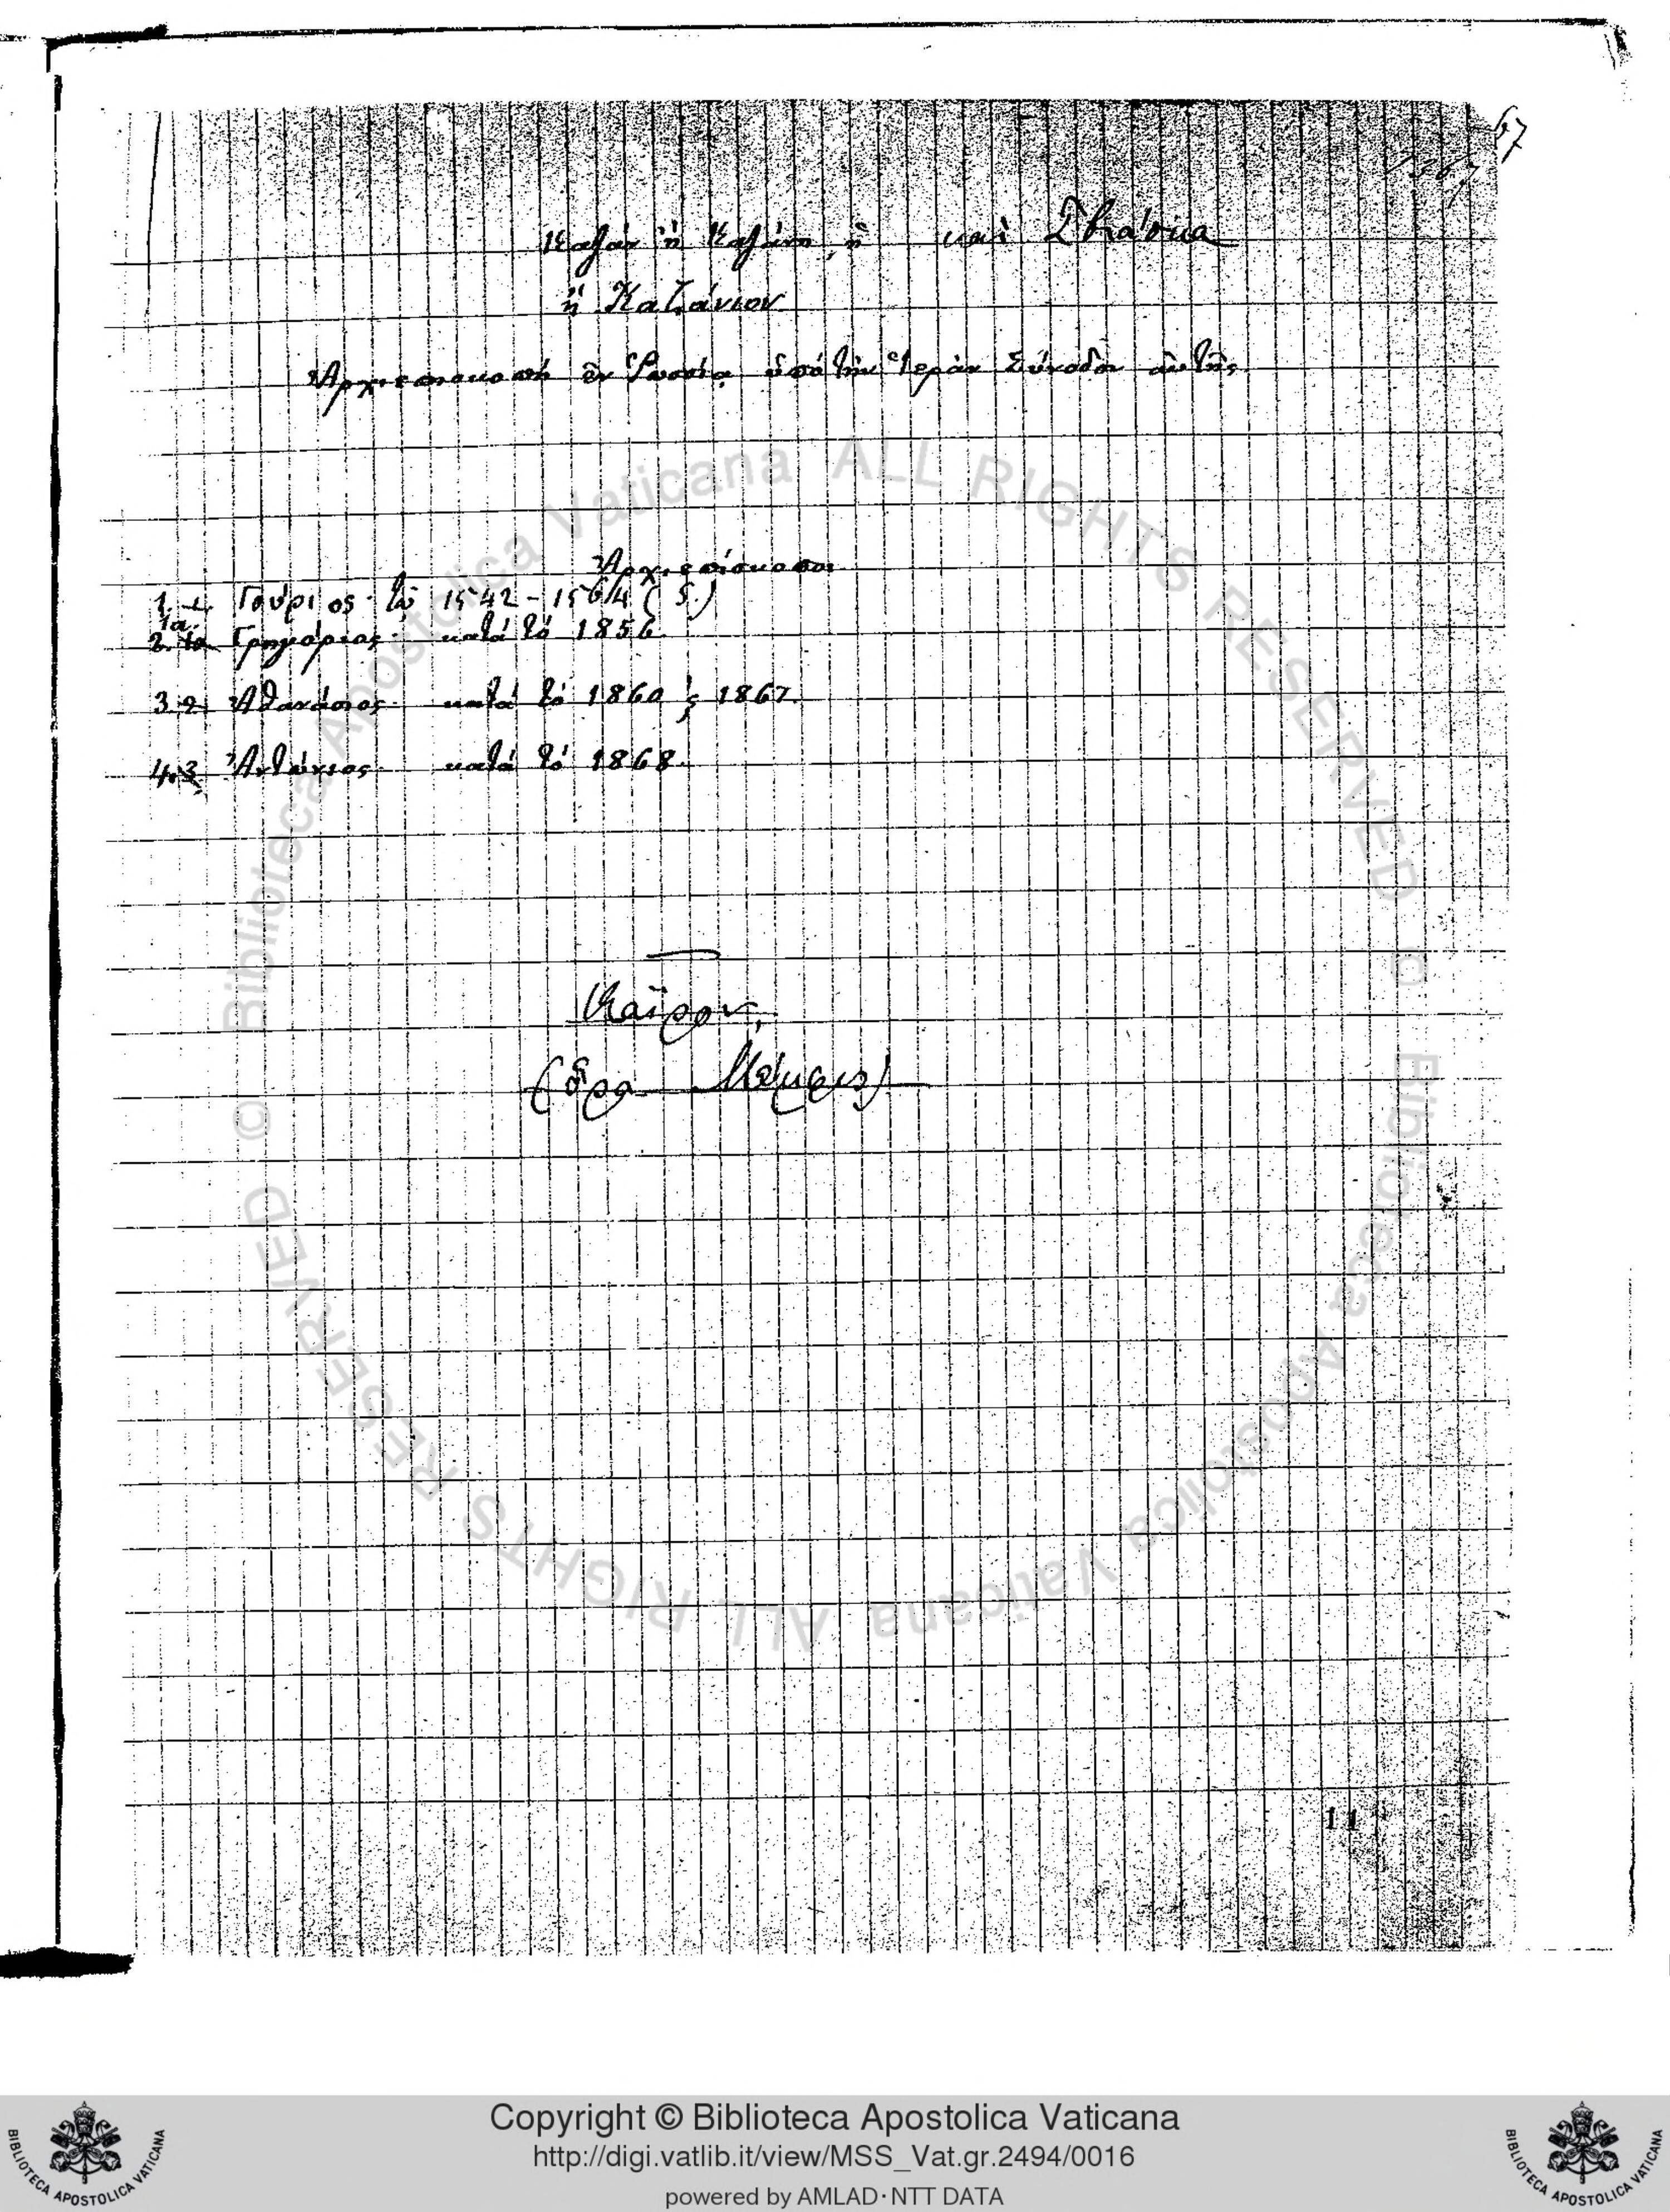 67
Καζάν ἢ Καζάνη, ἡ καὶ Σβιάσκα
ἢ Κατζάνιον
Ἀρχιεπισκοπὴ ἐν Ῥωσσίᾳ ὑπὸ τὴν Ἱερὰν Σύνοδον αὐτῆς.
Ἀρχιεπίσκοποι
1. Γούριος τῷ 1542 - 1564 (5.)
1α.
2. 1α Γρηγόριος κατὰ τὸ 1856
3. 2 Ἀθανάσιος κατὰ τὸ 1860 ς 1867.
4. 3 Ἀντώνιος κατὰ τὸ 1868.
Κάϊρον,
(ὅρα Μέμφις)
11
Biblioteca Apostolica Vaticana ALL RIGHTS RESERVED ©
Biblioteca Apostolica Vaticana ALL RIGHTS RESERVED ©
BIBLIOTECA APOSTOLICA VATICANA
Copyright © Biblioteca Apostolica Vaticana
http://digi.vatlib.it/view/MSS_Vat.gr.2494/0016
powered by AMLAD·NTT DATA
BIBLIOTECA APOSTOLICA VATICANA